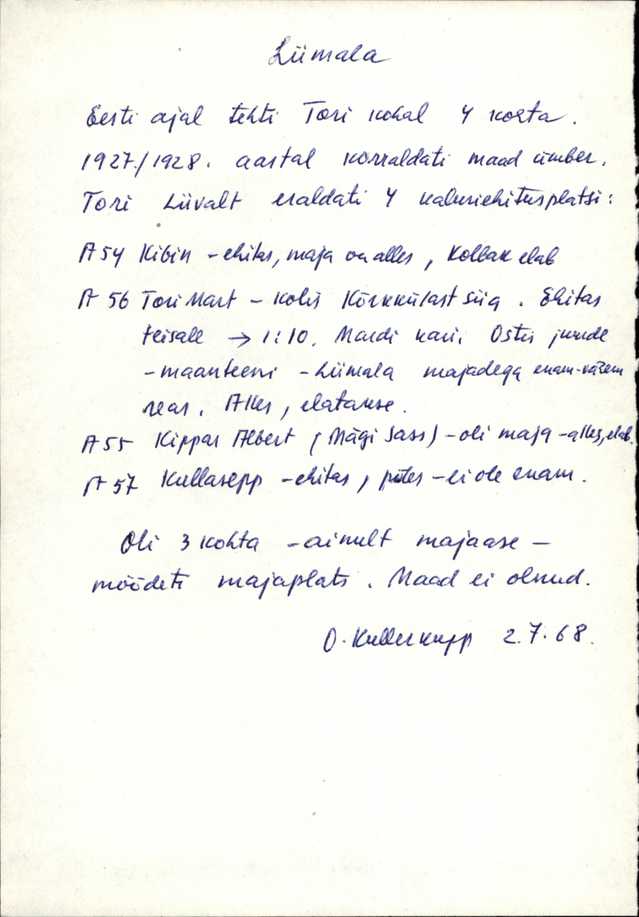 Liimala
Eesti ajal tehti Tori kohal 4 kohta.
1927./1928. aastal korraldati maad ümber.
Tori Liivalt eraldati 4 kaluriehitusplatsi:
A 54 Kibin - ehitas, maja on alles, Kolbak elab
A 56 Tori Mart - kolis Kõrkkülast siia. Ehitas
teisale → 1:10. Mardi kari. Ostis juurde
- maanteeni - Liimala majadega enam-vähem
reas. Alles, elatakse.
A 55 Kippar Albert (Mägi Sass) - oli maja - alles, elab.
A 57 Kullasepp - ehitas, põles - ei ole enam.
Oli 3 kohta - ainult majaase -
mõõdeti majaplats. Maad ei olnud.
O. Kullerkupp 2.7.68.